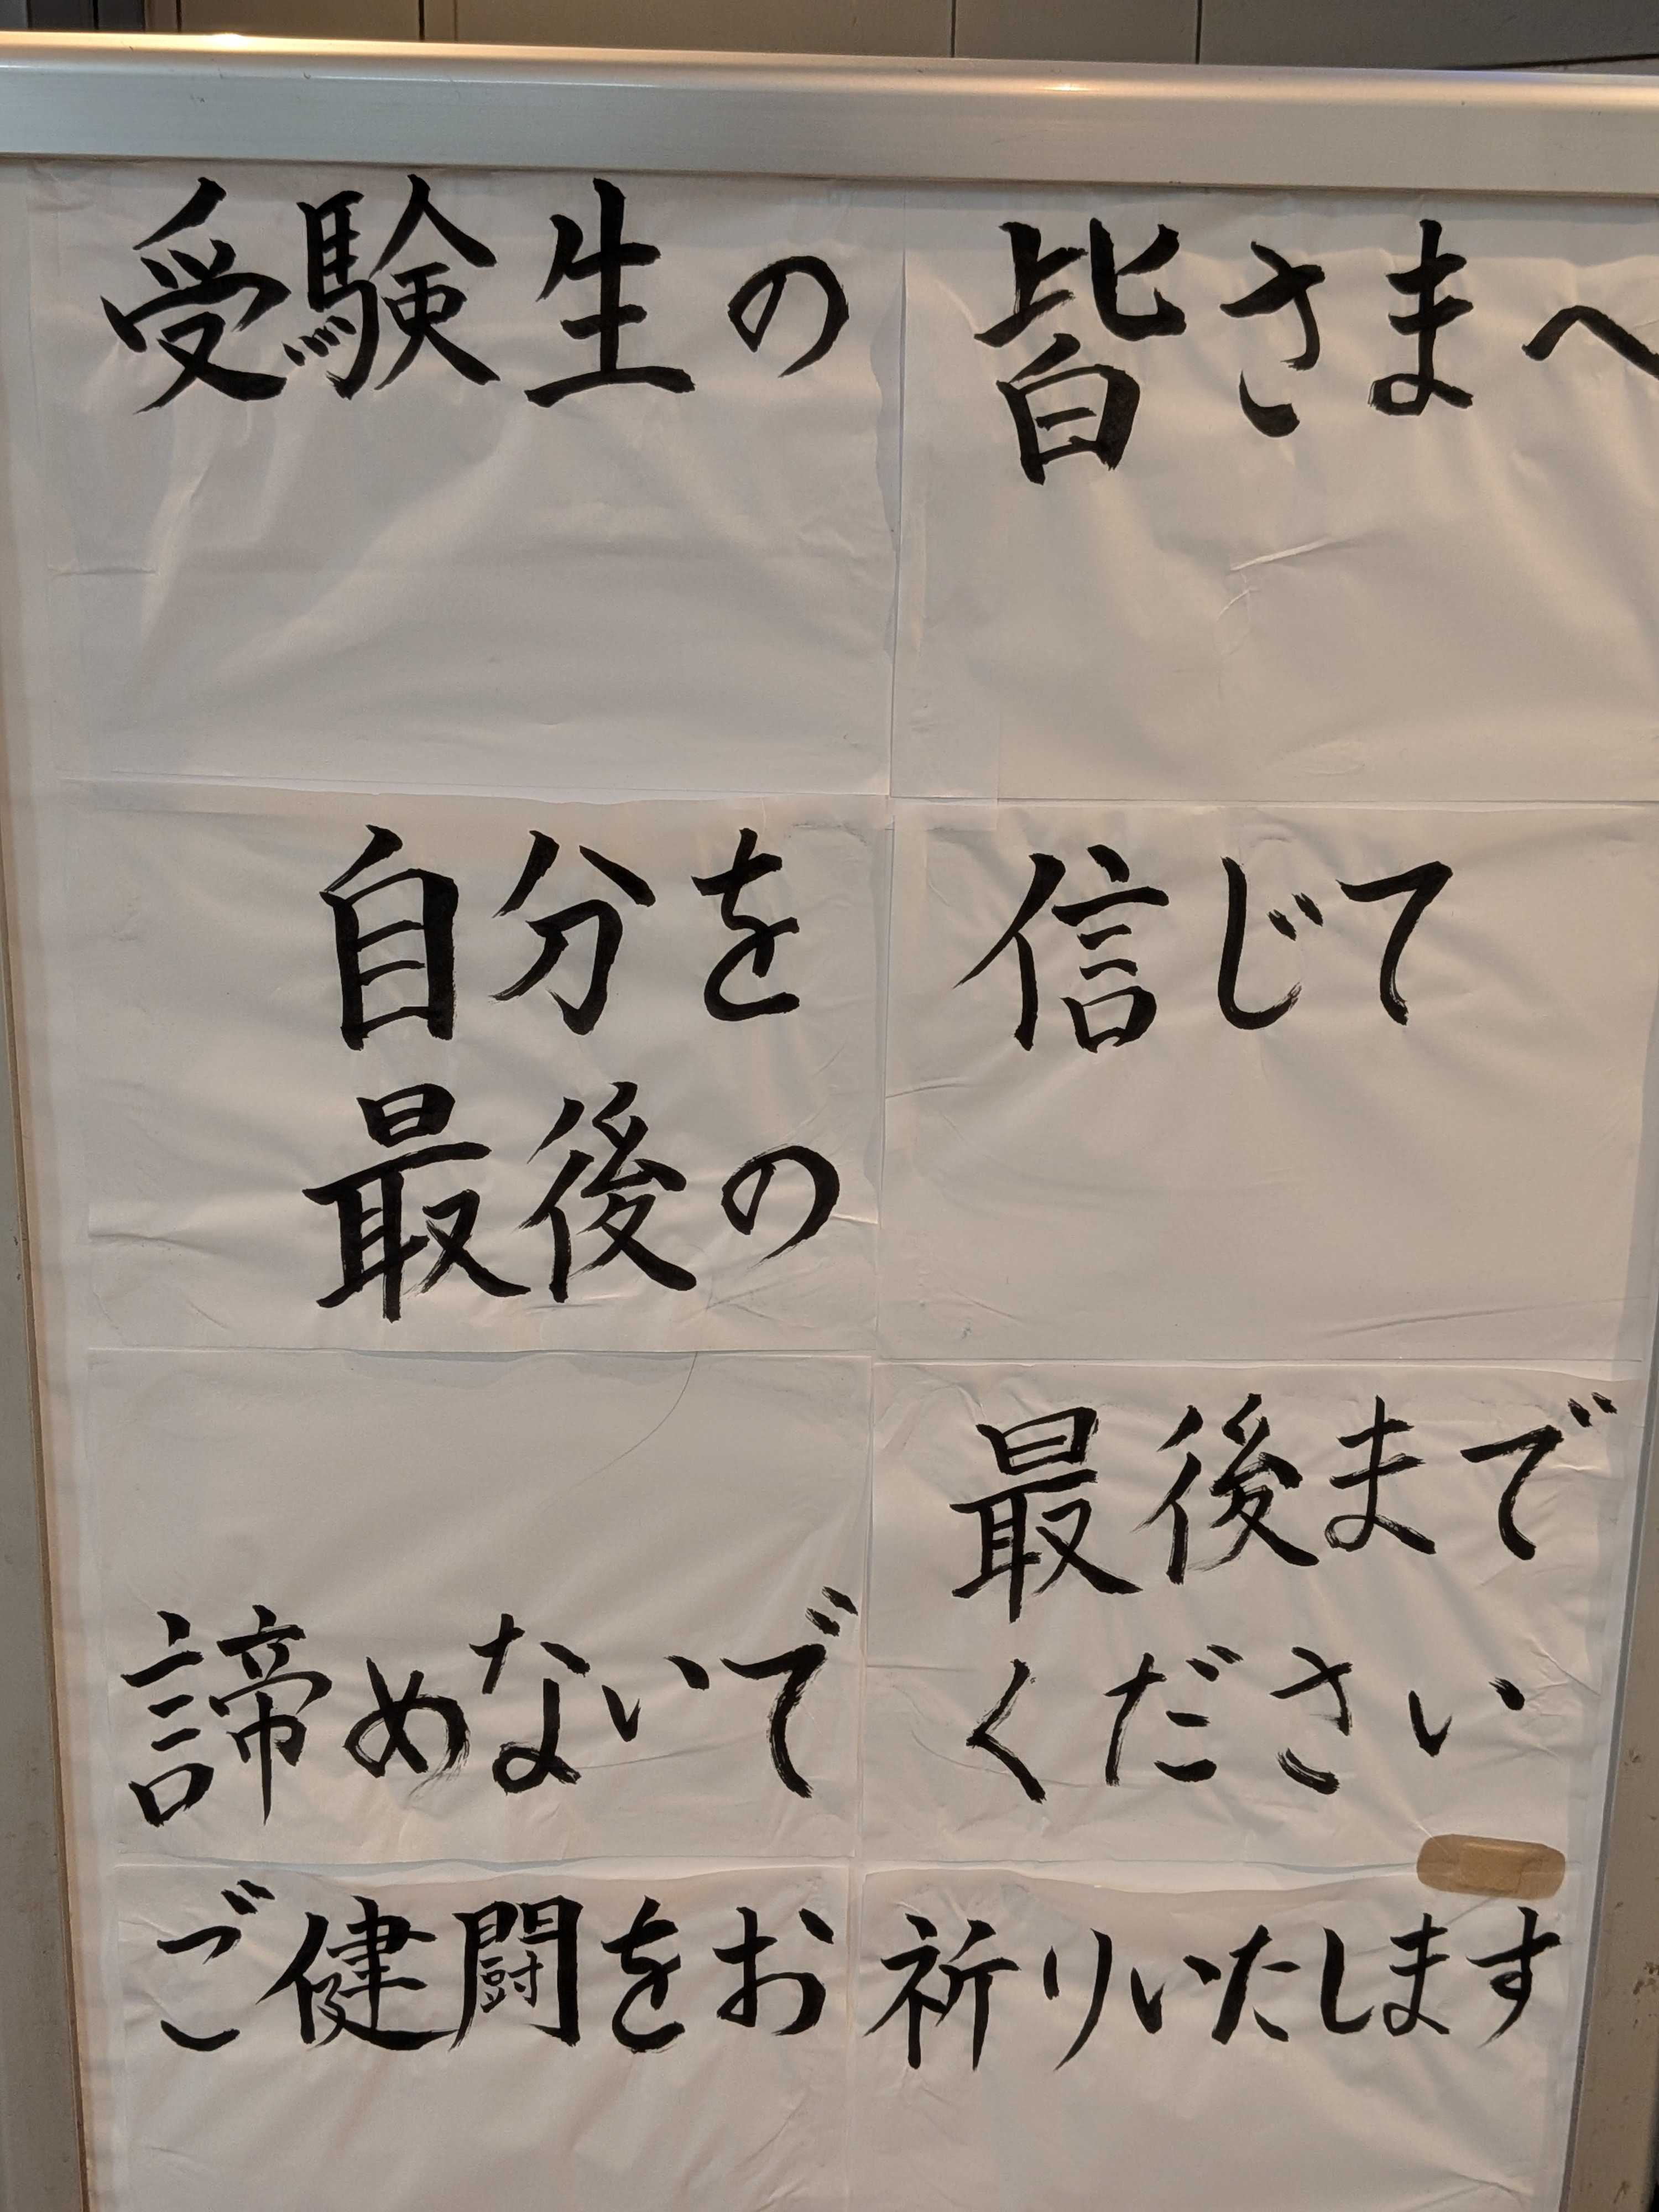 受験生の皆さまへ
自分を信じて
最後の
最後まで
諦めないでください
ご健闘をお祈りいたします